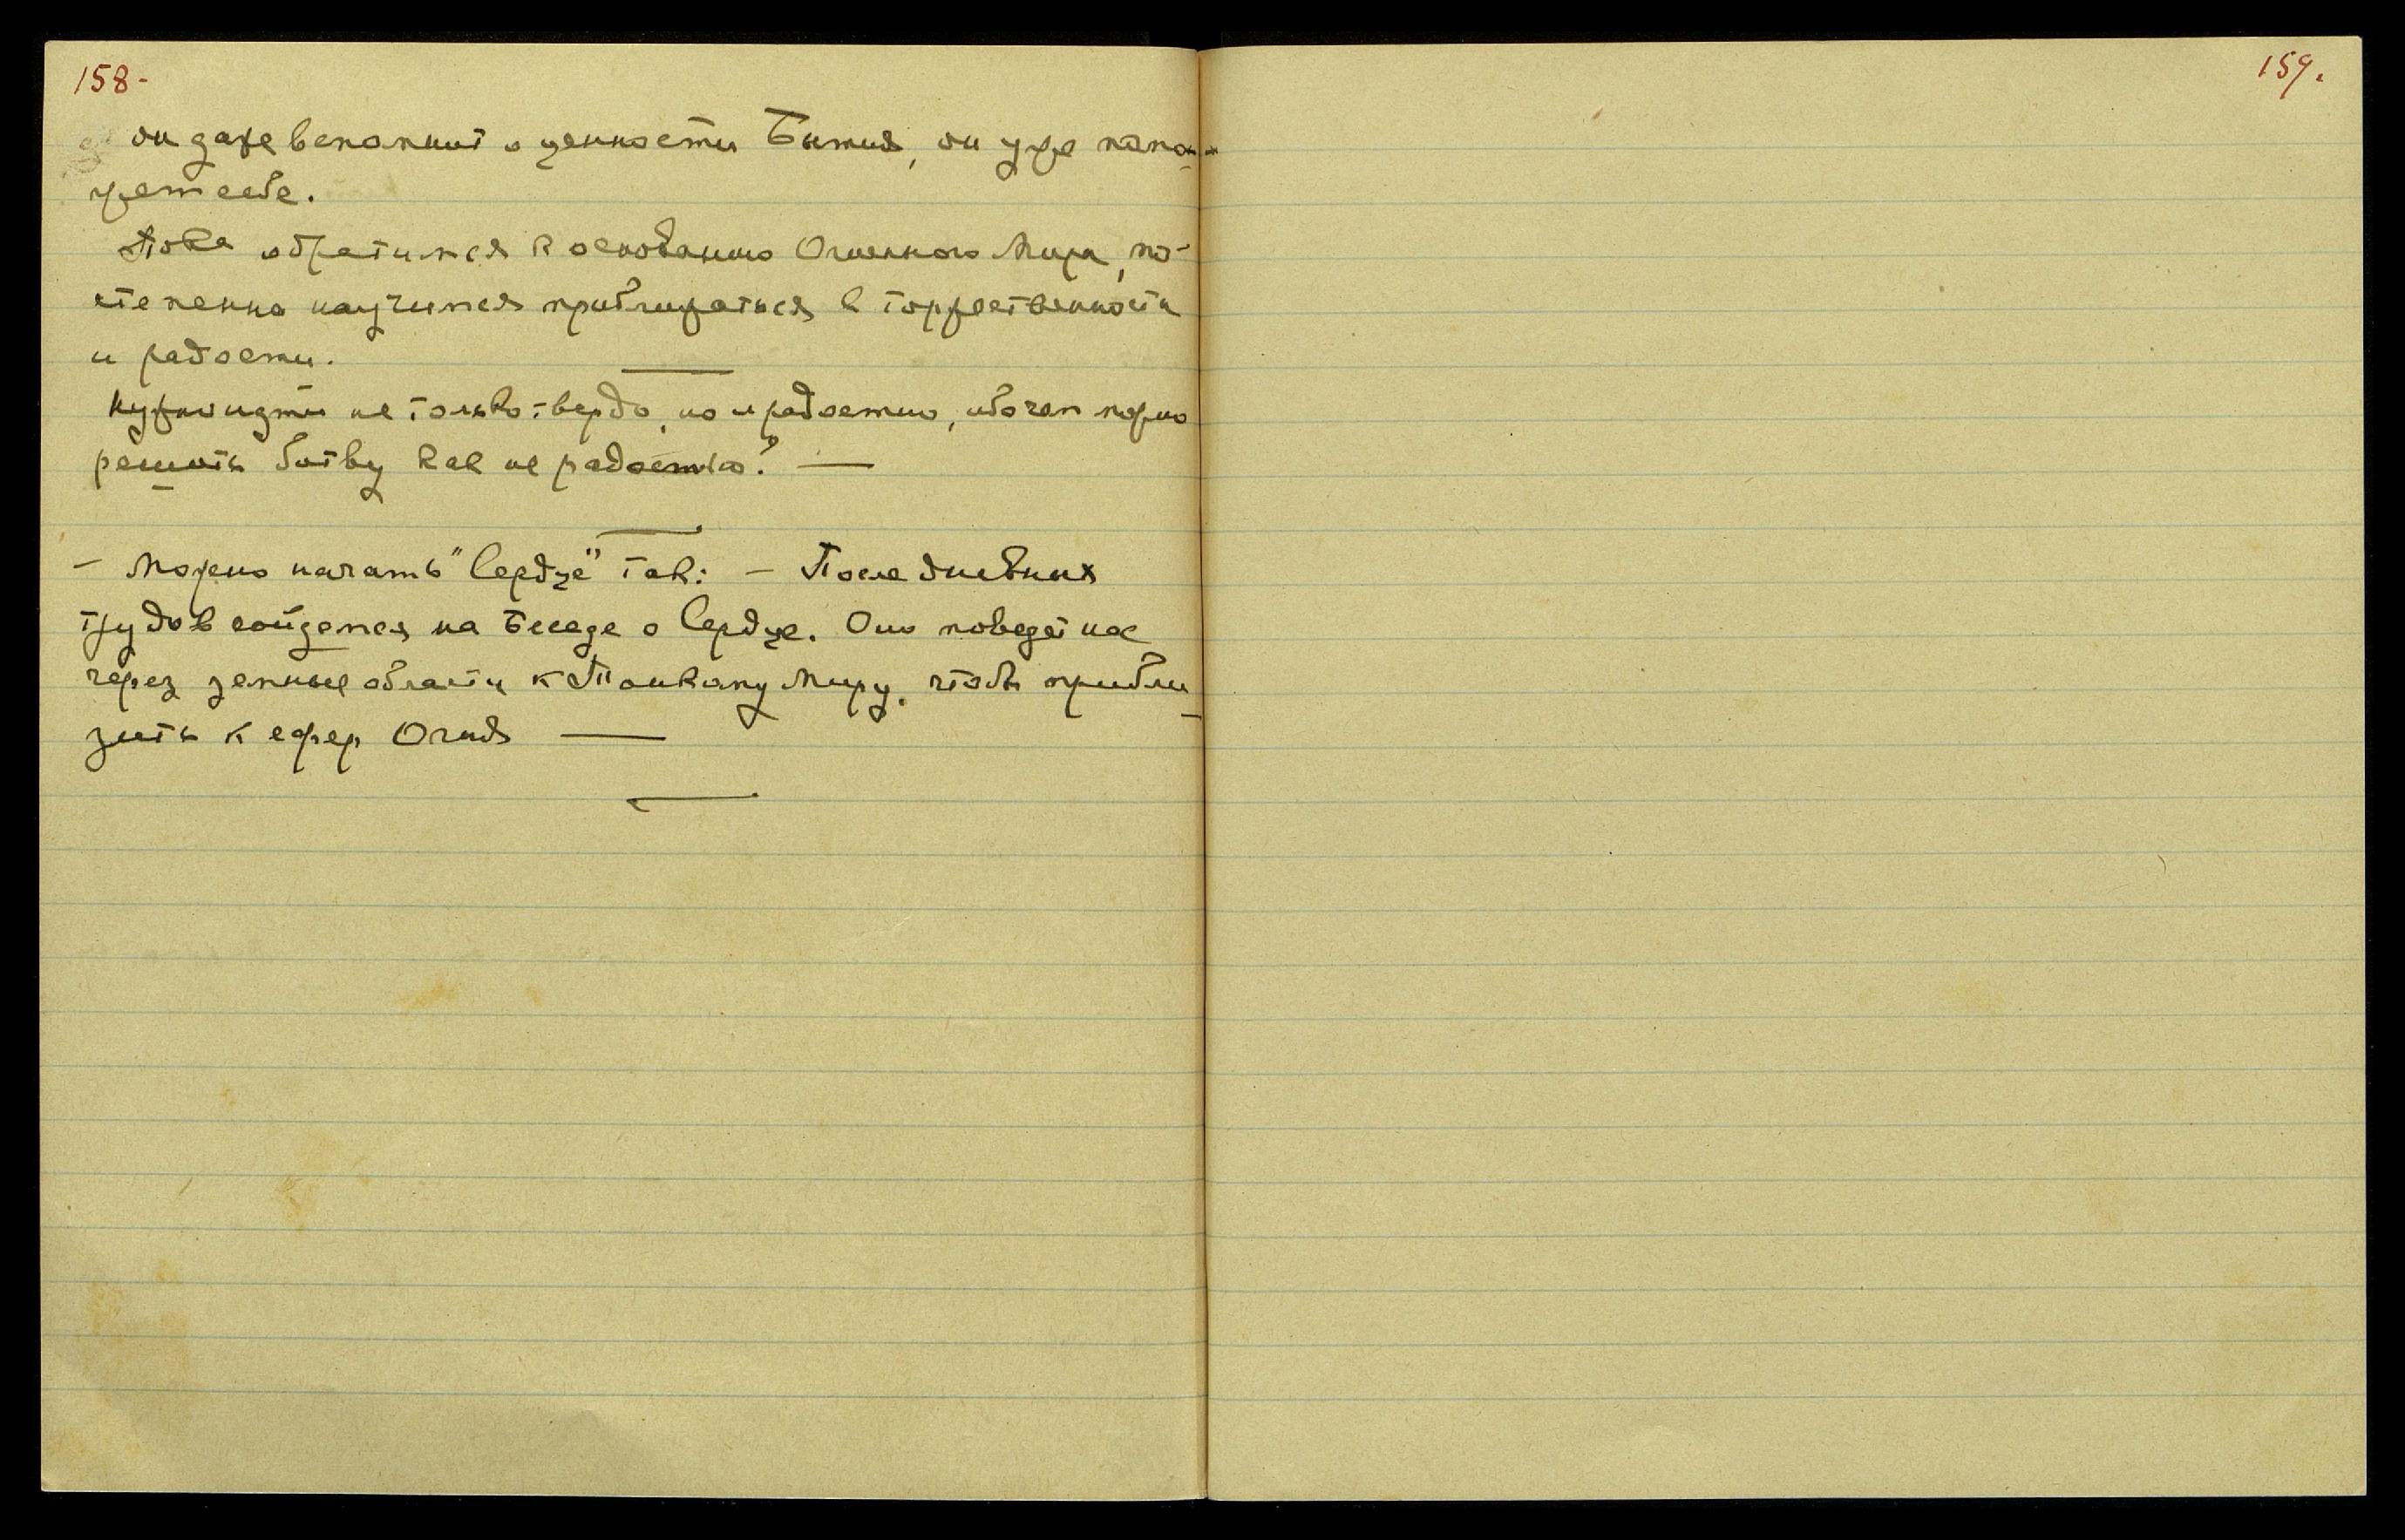 158-
он даже вспомнит о ценности Бытия, он уже помо-
жет себе.
Пока обратимся к основанию Огненного Мира, по-
степенно научимся приближаться в торжественности
и радости.
Нужно идти не только твердо, но и радостно, ибо чем можно
решить битву как не радостью? —
— Можно начать "Сердце" так: — После дневных
трудов сойдемся на Беседе о Сердце. Оно поведет нас
через земные области к Тонкому Миру, чтобы прибли-
зить к сфер Огня —
159.